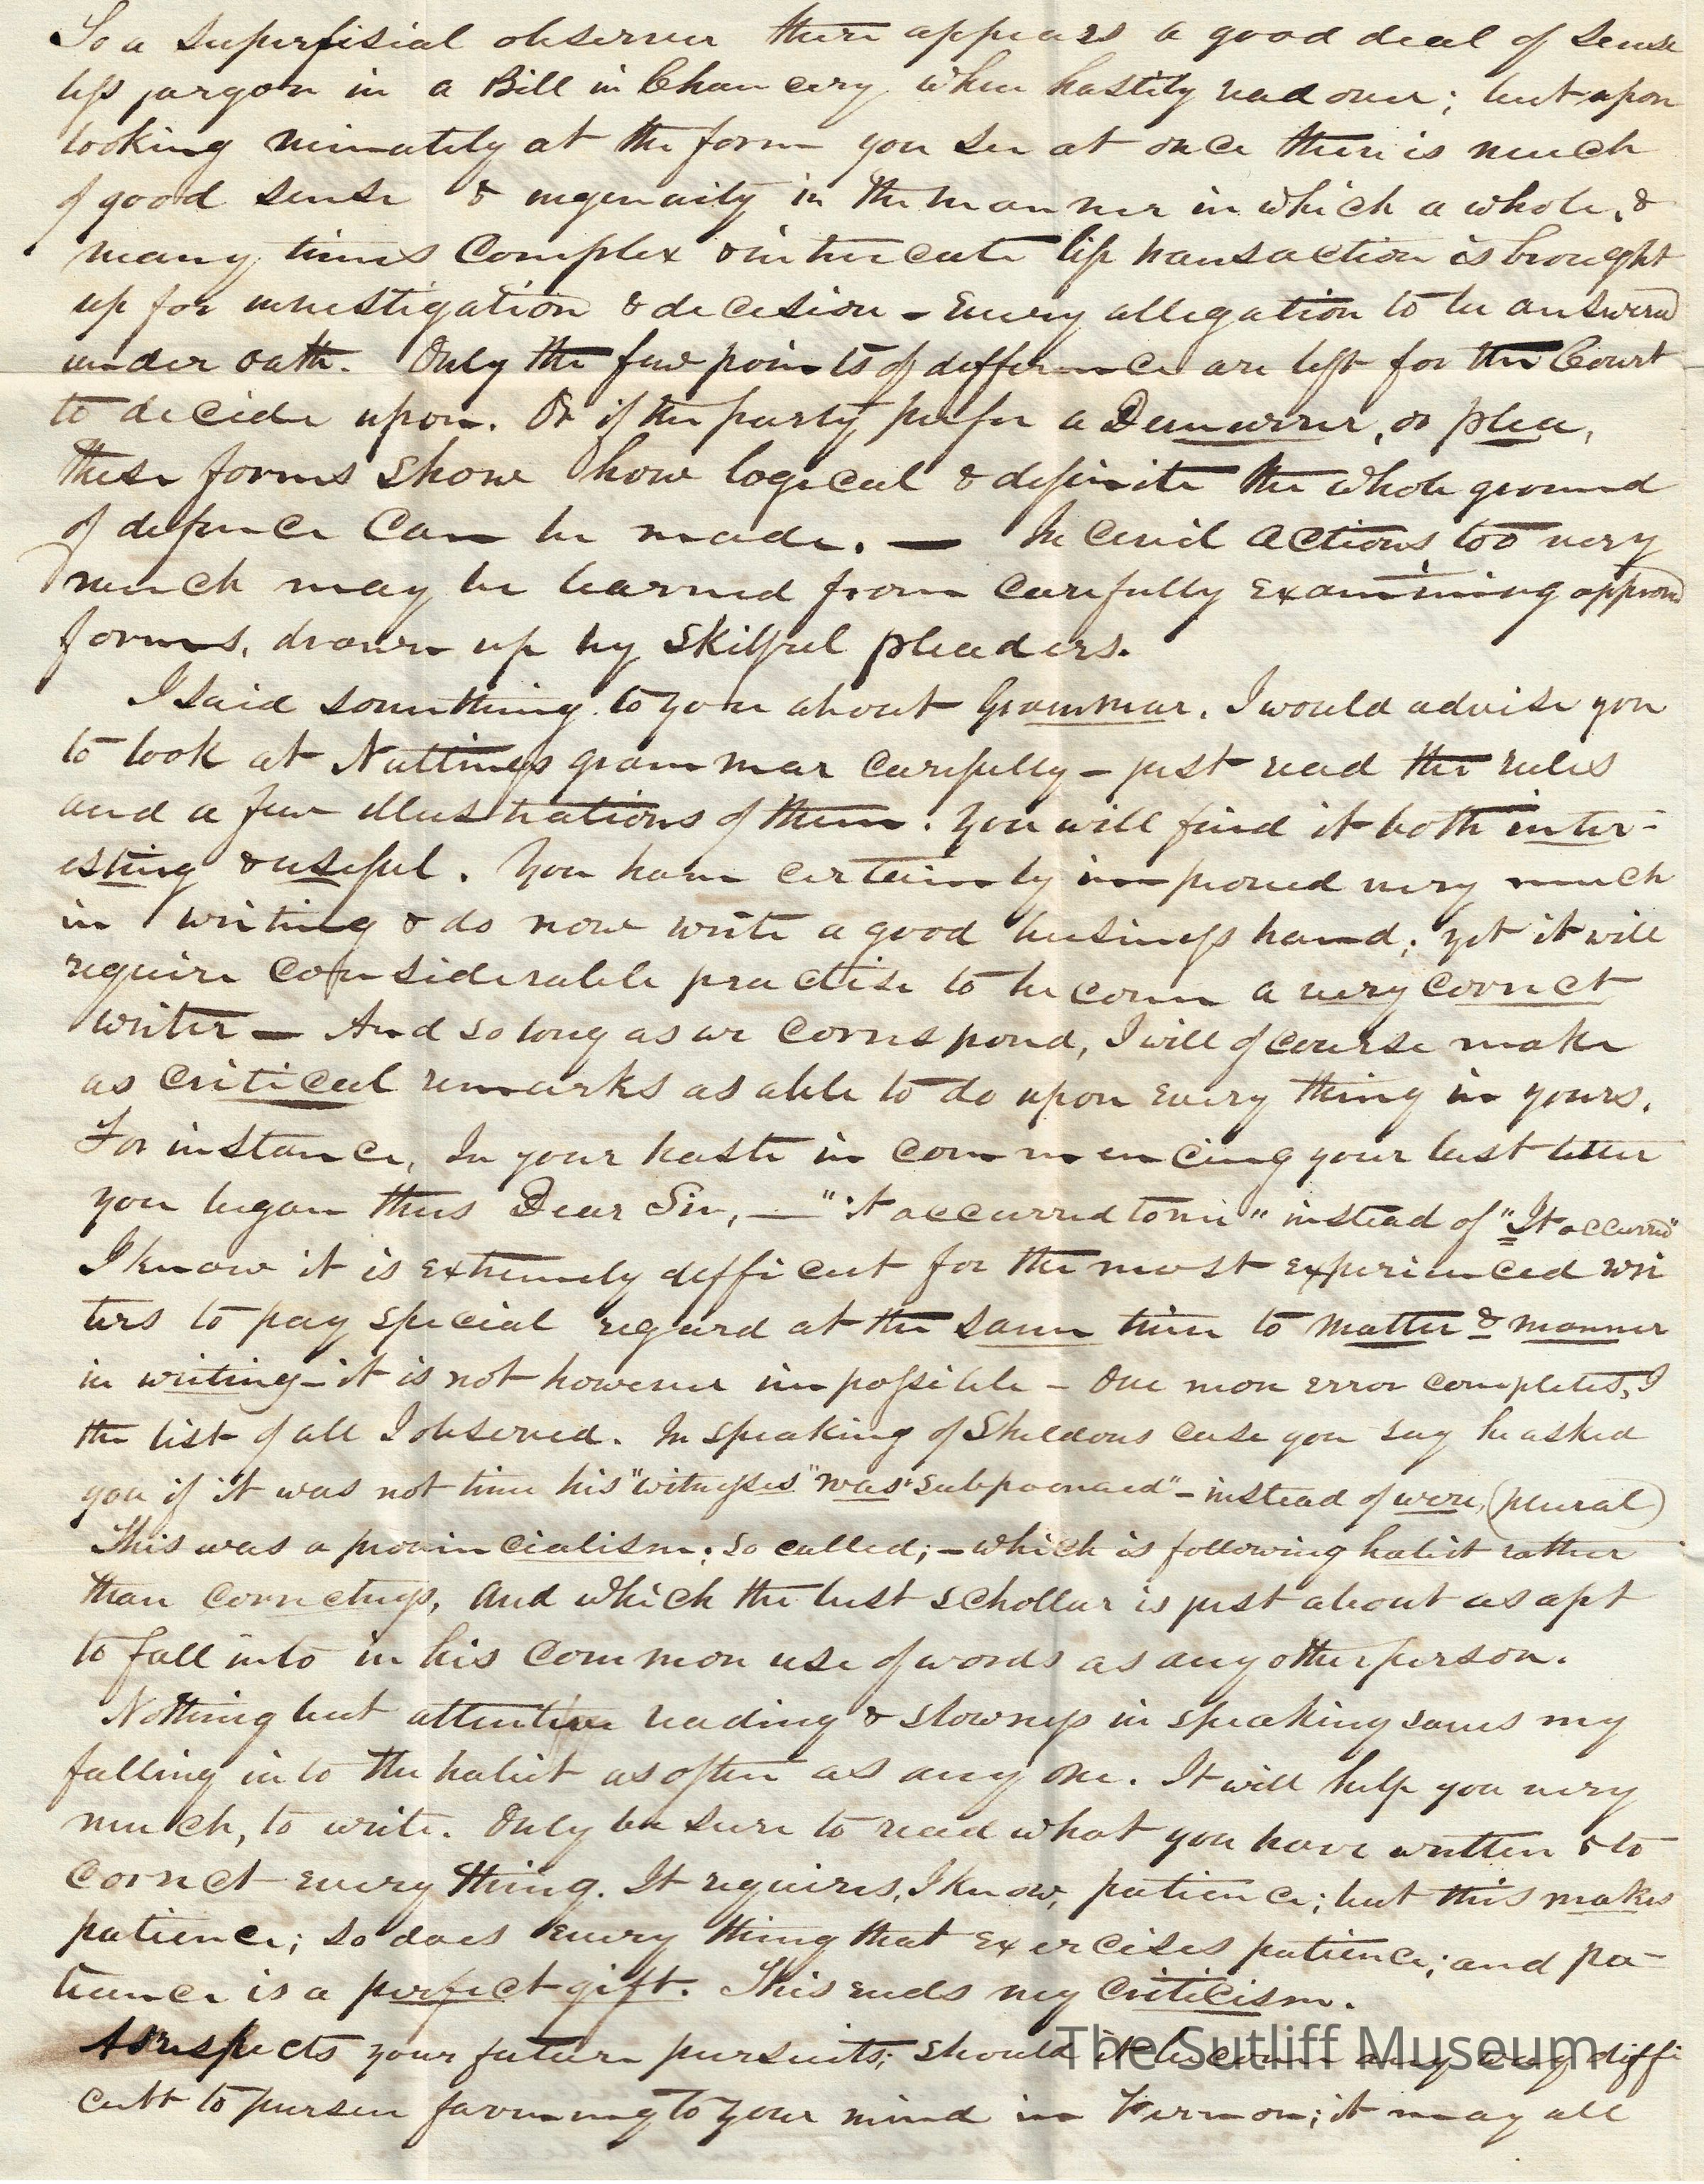 To a superfisial observer there appears a good deal of sense
less jargon in a Bill in Chancery when hastily read over; but upon
looking minutely at the form you see at once there is much
of good sense & ingenuity in the manner in which a whole, &
many times complex & intricate transaction is brought
up for investigation & decesion – every allegation to be answered
under oath. Only the few points of difference are left for the Court
to decide upon. Or if the party prefer a Demurrer, or plea,
these forms show how logical & definite the whole ground
of defence can be made. — In civil actions too very
much may be learned from carefully examining approved
forms, drawn up by skilful pleaders.
I said something to you about Grammar. I would advise you
to look at Nuttings grammar carefully – just read the rules
and a few illustrations of them. You will find it both inter-
esting & useful. You have certainly improved very much
in writing & do now write a good business hand; yet it will
require considerable practise to become a very correct
writer — And so long as we correspond, I will of course make
as critical remarks as able to do upon every thing in yours.
For instance, In your haste in commencing your last letter
you began thus Dear Sir, — "it occurred to me" instead of "It occurred"
I know it is extremely difficult for the most experienced wri
ters to pay special regard at the same time to matter & manner
in writing – it is not however impossible – One more error completes,
the list of all I observed. In speaking of Sheldons case you say he asked
you if it was not time his "witnesses" "was" subpoonaed" – instead of were, (plural)
This was a provincialism; so called; – which is following habit rather
than correctness, and which the best schollar is just about as apt
to fall into in his common use of words as any other person.
Nothing but attentive reading & slowness in speaking saves my
falling into the habit as often as any one. It will help you very
much, to write. Only be sure to read what you have written & to
correct every thing. It requires, I know, patience; but this makes
patience; so does every thing that exercises patience; and pa-
tience is a perfect gift. This ends my criticism.
As respects your future pursuits; should it become any way diffi
cult to pursue farming to your mind in Vernon; it may all
The Sutliff Museum